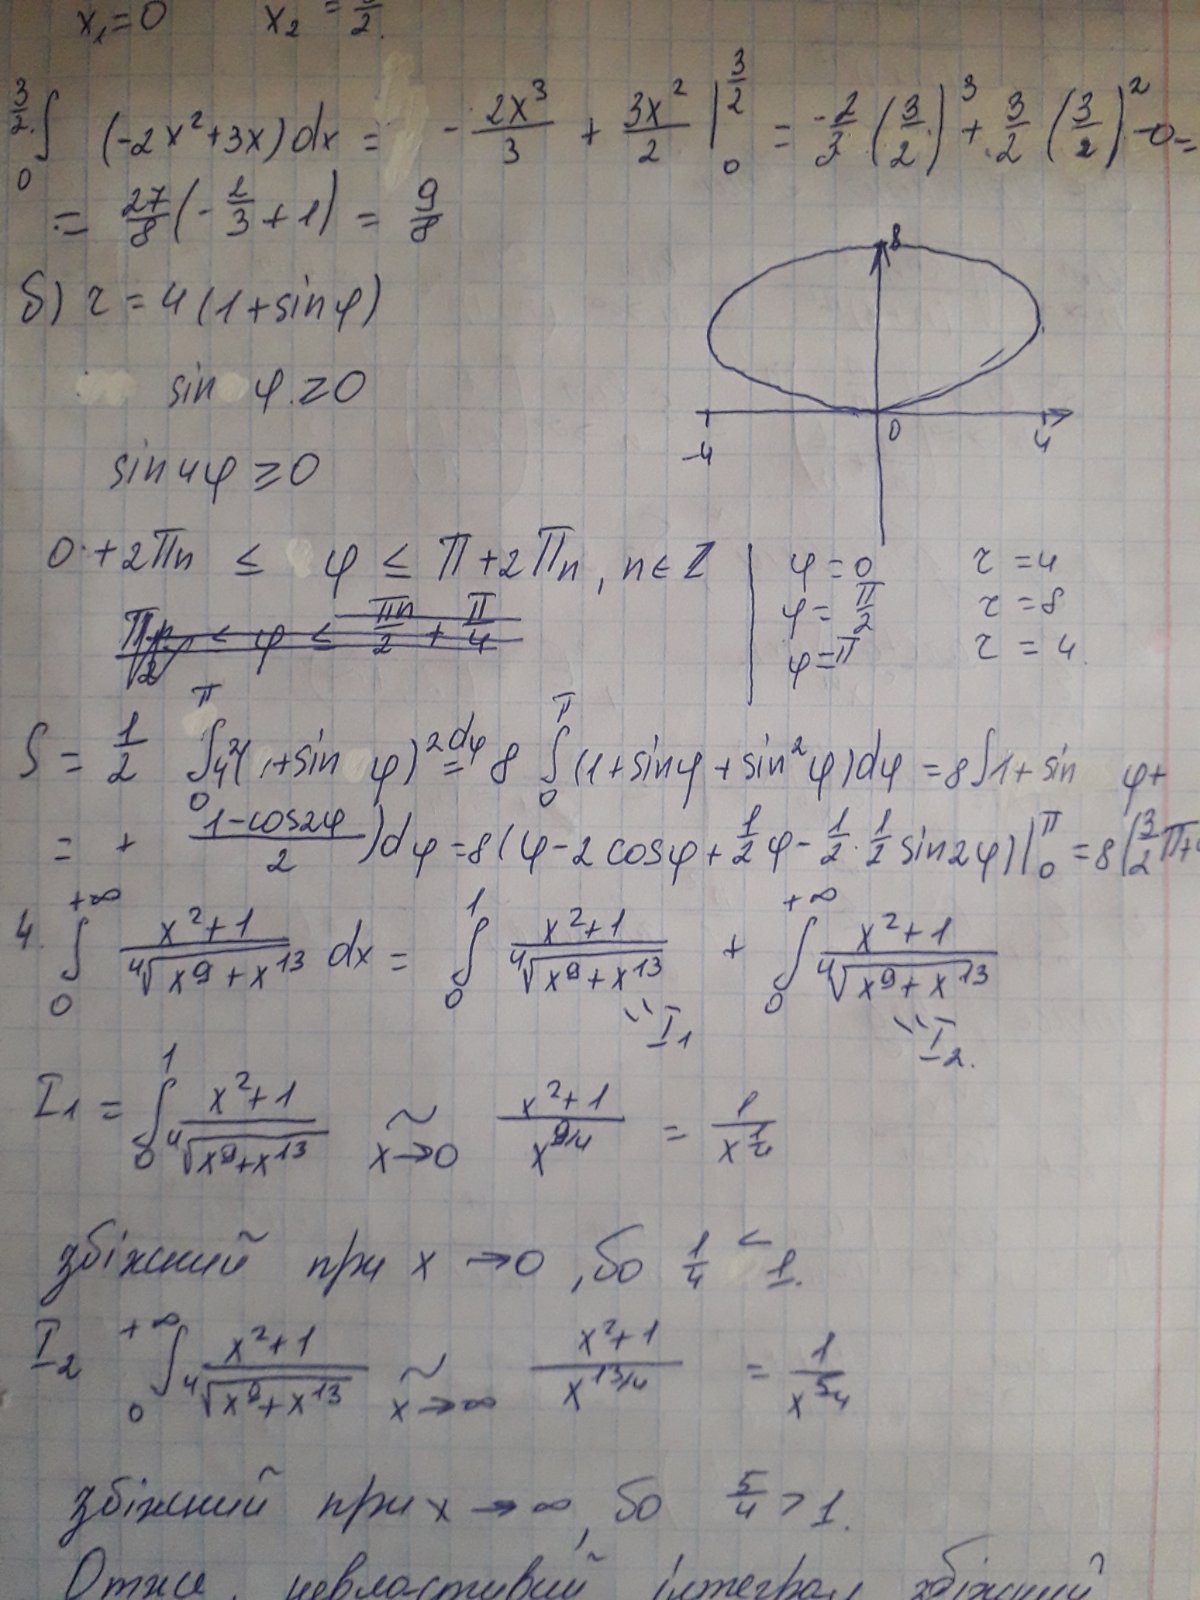 x₁ = 0 x₂ = 3/2.
∫₀^{3/2} (-2x² + 3x) dx = -2x³/3 + 3x²/2 |₀^{3/2} = -2/3 (3/2)³ + 3/2 (3/2)² - 0 =
= 27/8 (-2/3 + 1) = 9/8
б) r = 4(1 + sin φ)
sin φ ≥ 0
sin 4φ ≥ 0
8
-4 0 4
0 + 2πn ≤ φ ≤ π + 2πn, n ∈ Z
πn/2 ≤ φ ≤ πn/2 + π/4
φ = 0 r = 4
φ = π/2 r = 8
φ = π r = 4
S = 1/2 ∫₀^π 4²(1 + sin φ)² dφ = 8 ∫₀^π (1 + sin φ + sin² φ) dφ = 8 ∫ 1 + sin φ +
= + (1 - cos 2φ)/2) dφ = 8(φ - 2 cos φ + 1/2 φ - 1/2 · 1/2 sin 2φ) |₀^π = 8(3/2 π +
4. ∫₀^{+∞} (x² + 1)/⁴√(x⁹ + x¹³) dx = ∫₀¹ (x² + 1)/⁴√(x⁹ + x¹³) + ∫₀^{+∞} (x² + 1)/⁴√(x⁹ + x¹³)
" I₁ " I₂.
I₁ = ∫₀¹ (x² + 1)/⁴√(x⁹ + x¹³) ~ x→0 (x² + 1)/x^{9/4} = 1/x^{1/4}
збіжний при x → 0, бо 1/4 < 1.
I₂ ∫₀^{+∞} (x² + 1)/⁴√(x⁹ + x¹³) ~ x→∞ (x² + 1)/x^{13/4} = 1/x^{5/4}
збіжний при x → ∞, бо 5/4 > 1.
Отже, невластивий інтеграл збіжний